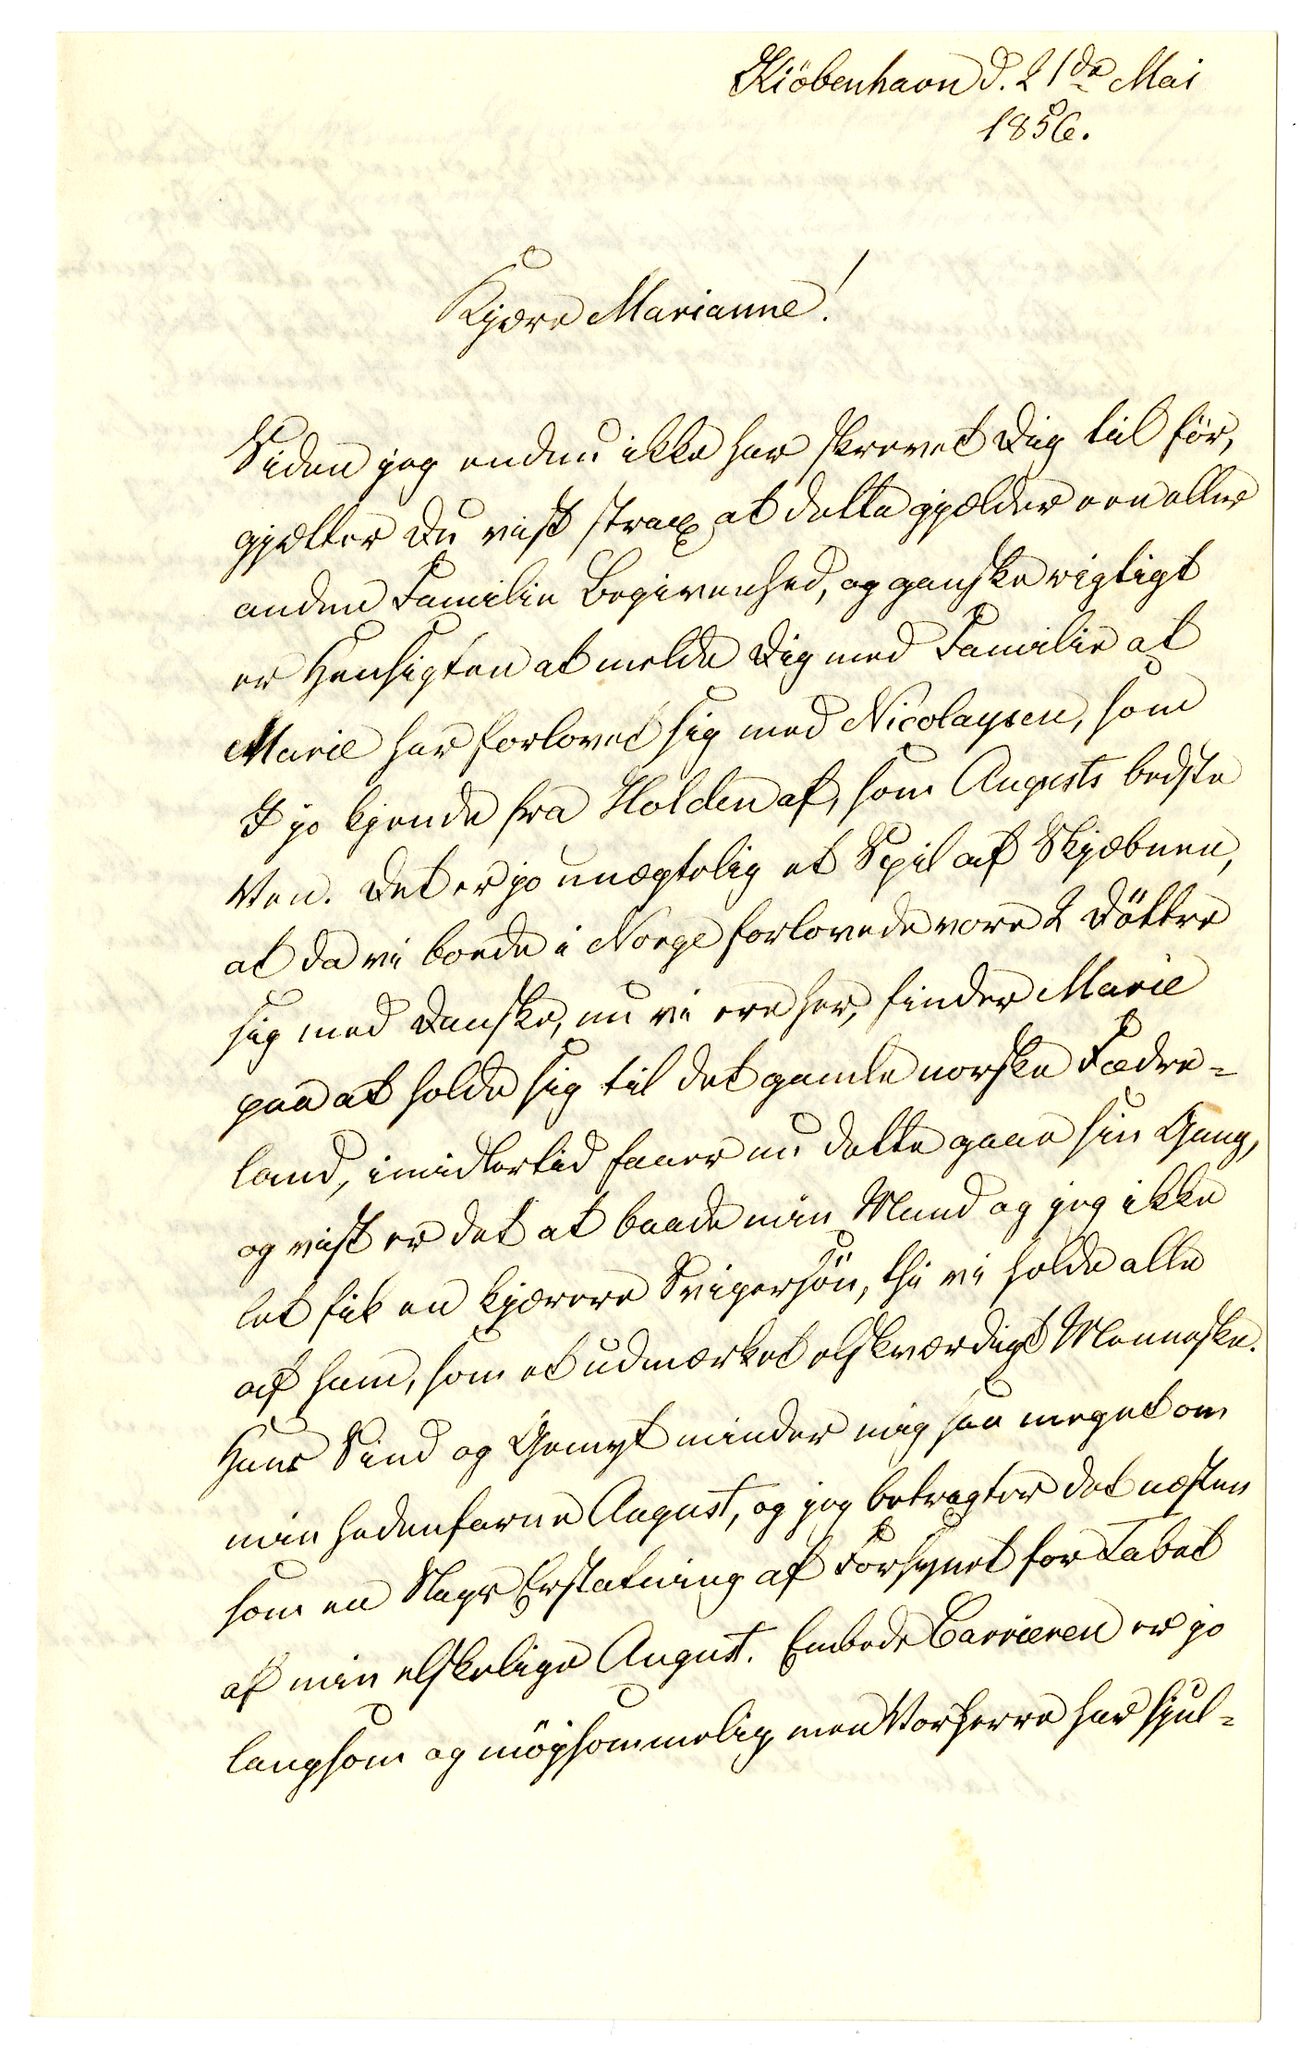 Kiöbenhavn d. 21de Mai
1856.
Kjære Marianne!
Siden jeg endnu ikke har skrevet Dig til för,
gjetter Du vist strax at dette gjælder een eller
anden Familie Begivenhed, og ganske rigtigt
er Hensigten at melde Dig med Familie at
Marie har forlovet sig med Nicolaysen, som
I jo kjende fra Holden af, som Augusts bedste
Ven. Det er jo unægtelig et Spil af Skjæbnen,
at da vi boede i Norge forlovede vore 2 Döttre
sig med Danske, nu vi ere her, finder Marie
paa at holde sig til det gamle norske Fædre-
land, imidlertid faaer nu dette gaae sin Gang,
og vist er det at baade min Mand og jeg ikke
let fik en kjærere Svigersön, thi vi holde alle
af ham, som et udmærket elskværdigt Menneske.
Hans Sind og Gemyt minder mig saa meget om
min hedenfarne August, og jeg betragter det næsten
som en Slags Erstatning af Forsynet for Tabet
af min elskelige August. Embeds Carrieren er jo
langsom og möjsommelig men Vorherre har hjul-